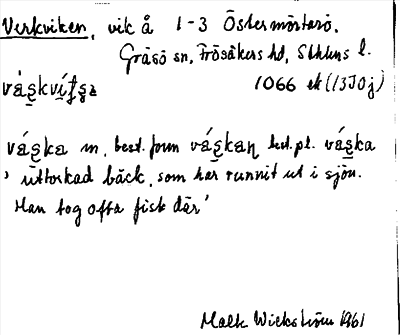 Verkviken, vik å 1-3 Östermörtarö,
Gräsö sn, Frösåkers hd, Sthlms l.
1066 ek (13J0j)
váska m, best. form váskan, best. pl. váska
'uttorkad bäck, som har runnit ut i sjön.
Man tog ofta fisk där'
Mats Wickström 1961